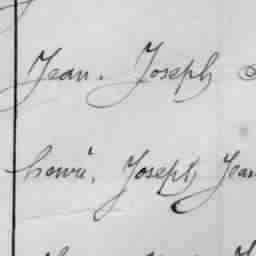 Jean. Joseph
henri, Joseph Jean